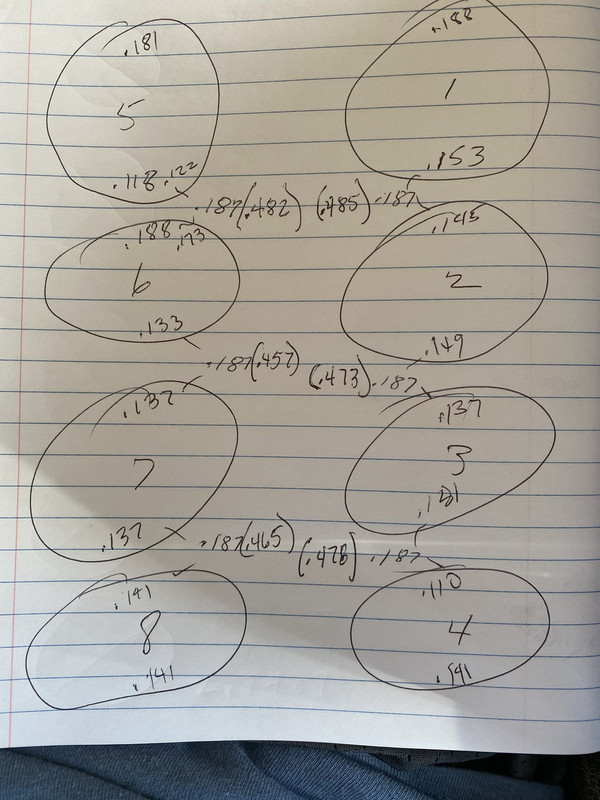 .181 .188
5 1
.118 .122 .153
.187(.482) (.485) .187
.188 .173 .145
6 2
.133 .149
.187(.457)
(.473) .187
.137 .137
7 3
.137
.187(.465) (.478) .187
.141 .110
8 4
.141 .141